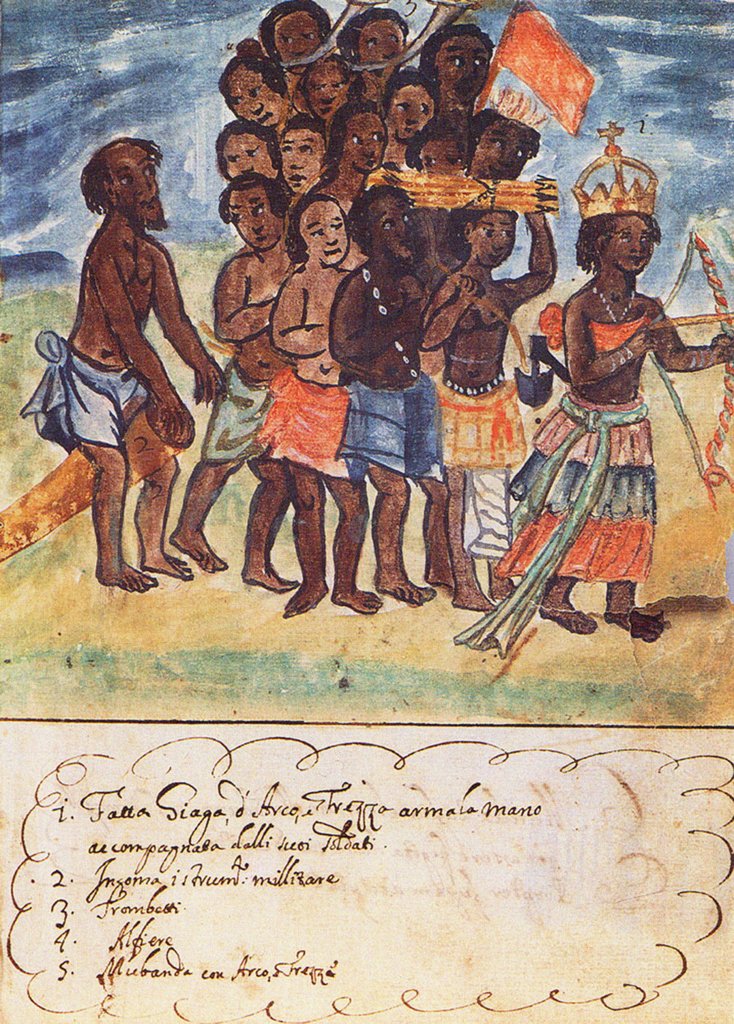 3
2
2
1. Fatta Giaga, d'Arco, e Frezza armala mano
accompagnata dalli suoi soldati.
2. Ingoma istrumᵗ: millitare
3. Trombetti
4. Alfiere
5. Mubanda con Arco, e Frezza